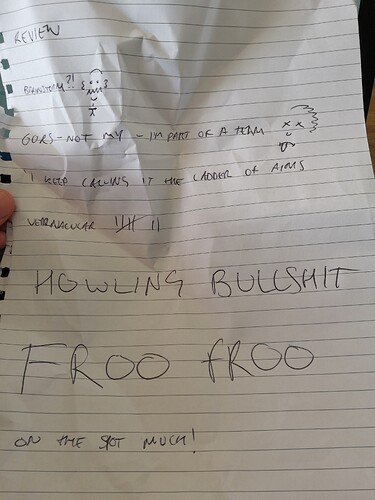 REVIEW
BRAINSTORM?!
GOERS-NOT MY - IM PART OF A TEAM
"I KEEP CALLING IT THE LADDER OF AIMS
VERNACULAR |||| ||
HOWLING BULLSHIT
FROO FROO
ON THE SPOT MUCH!